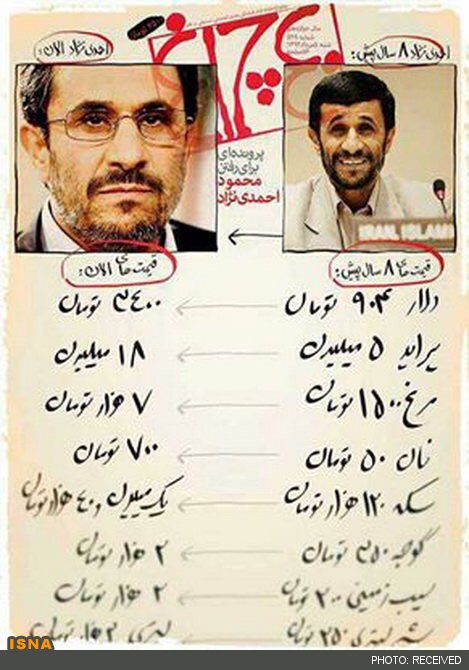 چلچراغ
احمدی نژاد ۸ سال پیش:
احمدی نژاد الان:
پرونده‌ای
برای رفتن
محمود
احمدی‌نژاد
قیمت های ۸ سال پیش:
قیمت های الان:
دلار ۹۰۴ تومان ← ۳۴۰۰ تومان
پراید ۵ میلیون ← ۱۸ میلیون
مرغ ۱۵۰۰ تومان ← ۷ هزار تومان
نان ۵۰ تومان ← ۷۰۰ تومان
سکه ۱۲۰ هزار تومان ← یک میلیون و ۴۰ هزار تومان
گوجه ۳۵۰ تومان ← ۲ هزار تومان
سیب زمینی ۲۰۰ تومان ← ۲ هزار تومان
شیر لیتری ۲۵۰ تومان ← لیتری ۳ هزار تومان
ISNA
PHOTO: RECEIVED